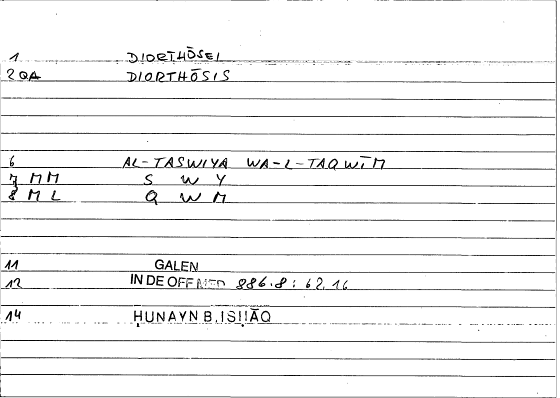 1 DIORTHŌSEI
2 QA DIORTHŌSIS
6 AL-TASWIYA WA-L-TAQWĪM
7 MM S W Y
8 ML Q W M
11 GALEN
12 IN DE OFF MED 886.8 : 62.16
14 ḤUNAYN B. ISḤĀQ